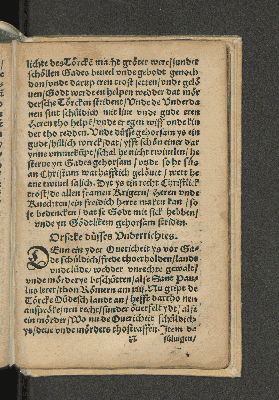 lichte des Törcke macht gröter were / sunder
schöllen Gades bevel unde gebodt genoch
don / unde darup eren trost setten / unde gelö
ven / Godt werd en helpen wedder dat mör
dersche Törcken strident / Unde de Underda
nen sint schüldich mit live unde gude eren
överen tho helpe / unde er egen wiff unde kin
der tho redden. Unde düsse gehorsam ys ein
gude / hillich werck / dat / yfft schön einer dar
ynne ummekumpt / schal he nicht twivelen / he
sterve yn Gades gehorsam / unde so he süs
an Christum warhafftich gelövet / wert he
ane twivel salich. Dyt ys ein recht Christlick
trost / de allen framen Krigern / Heren unde
Knechten / ein freidich herte maken kan / so
se bedencken / dat se Godt mit sick hebben /
unde yn Gödtliken gehorsam striden.
Orsake düsses Undertichtes.
DEnn ein yder Overicheit ys vor Ga-
de schüldich / frede tho erholden / lande
unde lüde / wedder unrechte gewalt /
unde mörderye beschütten / alse Sanct Pau
lus leret / thon Römern am xiij. Nu gript de
Törcke Düdesch landt an / hefft dartho nen
anspröke / nen recht / sunder överfelt ydt / alse
ein mörder / Wo nu de Overicheit schüldich
ys / deve unde mörders tho straffen / Item da
schüngen /